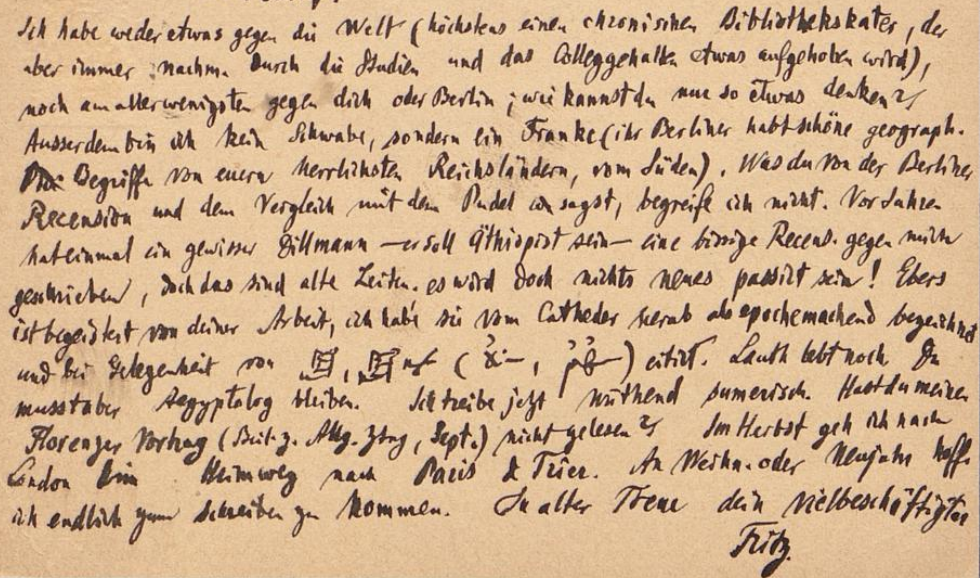 Ich habe weder etwas gegen die Welt (höchstens einen chronischen Bibliothekskater, der
aber immer nachm. durch die Studien und das Colleggehalten etwas aufgehoben wird),
noch am allerwenigsten gegen dich oder Berlin; wie kannst du nur so etwas denken?
Ausserdem bin ich kein Schwabe, sondern ein Franke (ihr Berliner habt schöne geograph.
Begriffe von euern herrlichsten Reichsländern, vom Süden). Was du von der Berliner
Recension und dem Vergleich mit dem Pudel sagst, begreife ich nicht. Vor Jahren
hat einmal ein gewisser Dillmann – er soll Äthiopist sein – eine bissige Recens. gegen mich
geschrieben, doch das sind alte Zeiten. es wird doch nichts neues passirt sein! Ebers
ist begeistert von deiner Arbeit, ich habe sie vom Catheder herab als epochemachend bezeichnet
und bei Gelegenheit von citirt. Lauth lebt noch Du
musst aber Aegyptolog bleiben. Ich treibe jetzt wüthend sumerisch. Hast du meinen
Florenzer Vortrag (Beil. z. Allg. Ztng, Sept.) nicht gelesen? Im Herbst geh ich nach
London Heimweg nach Paris & Trier. An Weihn. oder Neujahr hoff.
ich endlich zum schreiben zu kommen. In alter Treue dein vielbeschäftigter
Fritz.